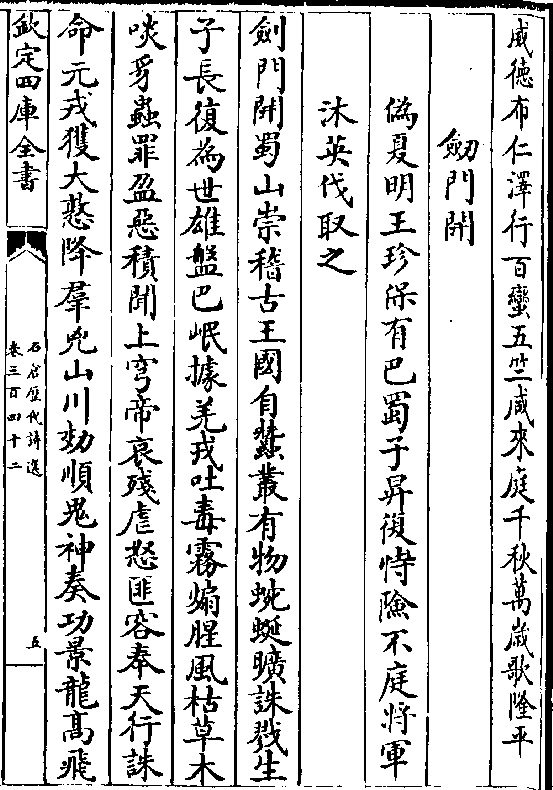 威德布仁澤行百蠻五竺咸來庭千秋萬歲歌隆平
劒門開
偽夏明王珍保有巴蜀子昇復恃險不庭將軍
沐英伐取之
劍門開蜀山崇稽古王國自蠶叢有物蜿蜒曠誅戮生
子長復為世雄盤巴岷據羌戎吐毒霧煽腥風枯草木
啖豸蟲罪盈惡積聞上穹帝哀殘虐怒匪容奉天行誅
命元戎獲大憝降羣兇山川効順鬼神奏功景龍高飛
欽定四庫全書
石倉歷代詩選
卷三百四十二
五